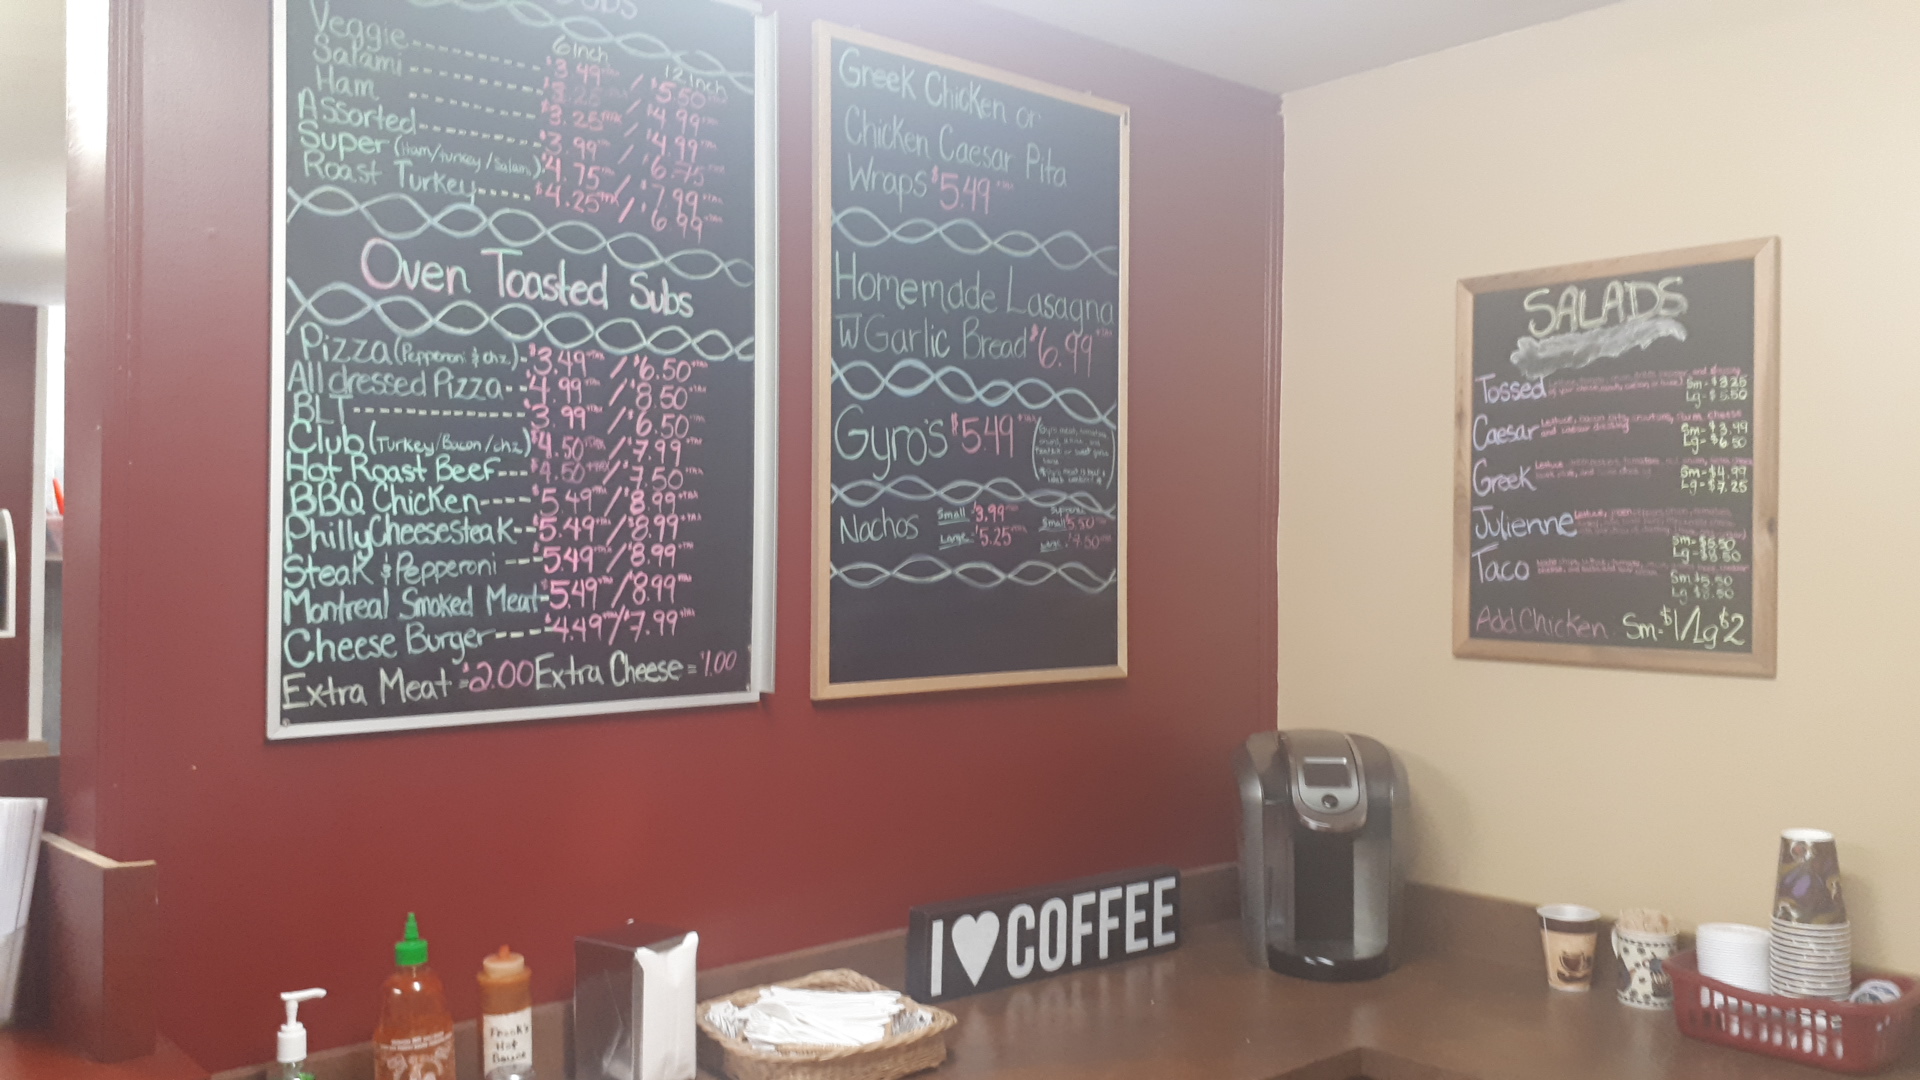 6 inch
12 inch
Veggie $3.49 / $5.50
Salami $3.25 / $4.99
Ham $3.25 / $4.99
Assorted $3.99 / $6.75
Super (Ham/turkey/Salami) $4.75 / $7.99
Roast Turkey $4.25 / $6.99
Oven Toasted Subs
Pizza (Pepperoni & chz) - $3.49 / $6.50
All dressed Pizza -- $4.99 / $8.50
BLT $3.99 / $6.50
Club (Turkey/Bacon/chz) $4.50 / $7.99
Hot Roast Beef --- $4.50 / $7.50
BBQ Chicken ---- $5.49 / $8.99
Philly Cheesesteak -- $5.49 / $8.99
Steak & Pepperoni --- $5.49 / $8.99
Montreal Smoked Meat - $5.49 / $8.99
Cheese Burger ---- $4.49 / $7.99
Extra Meat = $2.00 Extra Cheese = $1.00
Greek Chicken or
Chicken Caesar Pita
Wraps $5.49
Homemade Lasagna
W Garlic Bread $6.99
Gyro's $5.49
Nachos Small $3.99 Large $5.25
Supreme Small $5.50
SALADS
Tossed Sm-$3.25
Lg-$5.50
Caesar Lettuce, bacon bits, croutons, parm cheese
and caesar dressing Sm-$3.99
Lg-$6.50
Greek Sm-$4.99
Lg-$7.25
Julienne Sm-$5.50
Lg-$8.50
Taco Sm $5.50
Lg $8.50
Add Chicken Sm-$1/Lg $2
I COFFEE
Frank's
Hot
Sauce